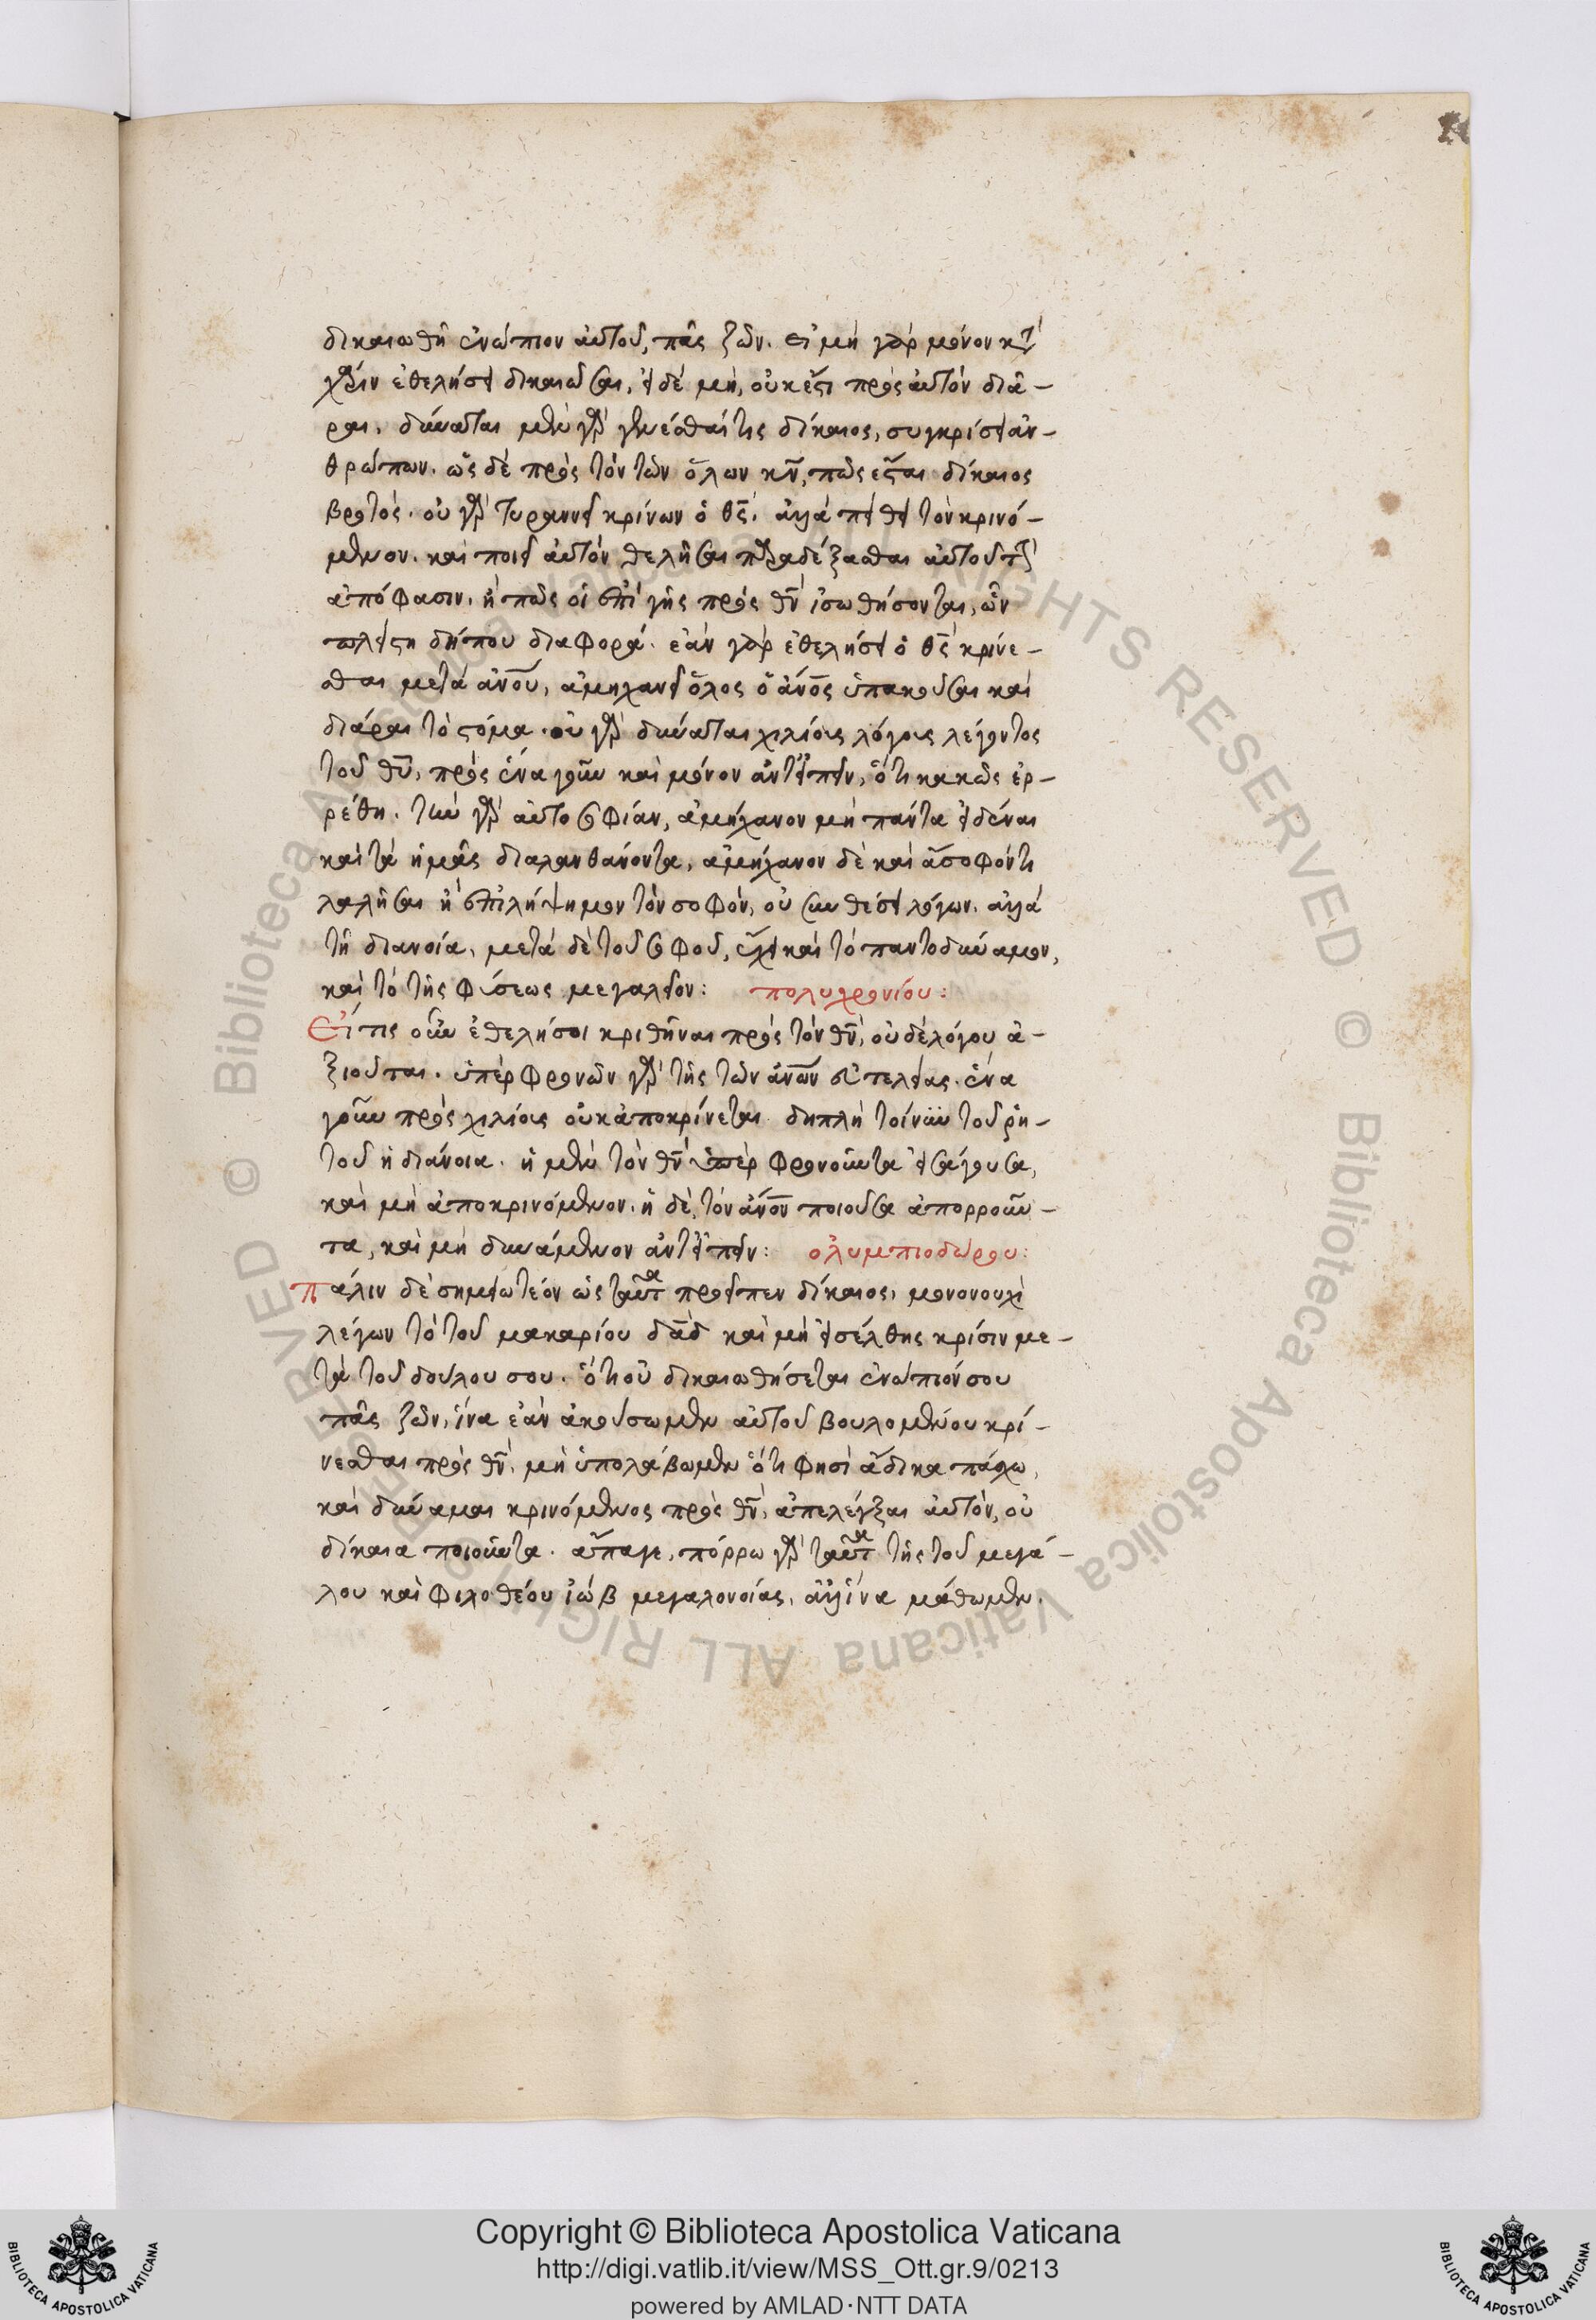 δικαιωθῆ ἐνώπιον αὐτοῦ, πᾶς ζῶν. εἰ μὴ γὰρ μόνον κτ
χάριν ἐθελήσει δικαιῶσαι, εἰ δὲ μὴ, οὐκ ἔστι πρὸς αὐτὸν διᾶ-
ραι. δύναται μὲν γὰρ γενέσθαι τις δίκαιος, συγκρίσει ἀν-
θρώπων. ὡς δὲ πρὸς τὸν τῶν ὅλων κν̄, πῶς ἔσται δίκαιος
βροτός. οὐ γὰρ τυραννεῖ κρίνων ὁ θς̄. ἀλλὰ πείθει τὸν κρινό-
μενον. καὶ ποιεῖ αὐτὸν θελῆσαι παραδέξασθαι αὐτοῦ τὴν
ἀπόφασιν. ἢ πῶς οἱ ἐπὶ γῆς πρὸς θν̄ ἰσωθήσονται, ὧν
πλείστη δήπου διαφορά. ἐὰν γὰρ ἐθελήσει ὁ θς̄ κρίνε-
σθαι μετὰ ἀνου, ἀμηχανεῖ ὅλος ὁ ἀνος ὑπακοῦσαι καὶ
διάραι τὸ στόμα. οὐ γὰρ δύναται χιλίοις λόγοις λέγοντος
τοῦ θυ, πρὸς ἕνα γοῦν καὶ μόνον ἀντειπεῖν, ὅτι κακῶς ἐρ-
ρέθη. τὴν γὰρ αὐτοσοφίαν, ἀμήχανον μὴ πάντα εἰδέναι
καὶ τὰ ἡμᾶς διαλανθάνοντα, ἀμήχανον δὲ καὶ ἄσοφόν τι
λαλῆσαι ἢ ἐπιλήψιμον τὸν σοφὸν, οὐ συνθέσει λόγων. ἀλλὰ
τῆ διανοία. μετὰ δὲ τοῦ σοφοῦ, ἔχει καὶ τὸ παντοδύναμον,
καὶ τὸ τῆς φύσεως μεγαλεῖον: πολυχρονίου:
Εἴ τις οὖν ἐθελήσοι κριθῆναι πρὸς τὸν θν̄, οὐδὲ λόγου ἀ-
ξιοῦται. ὑπὲρ φρονῶν γὰρ τῆς τῶν ἀνων εὐτελείας. ἕνα
γοῦν πρὸς χιλίοις οὐκ ἀποκρίνεται διπλῆ τοίνυν τοῦ ῥη-
τοῦ ἡ διάνοια. ἡ μὲν τὸν θν̄ ὑπὲρ φρονοῦντα εἰσάγουσα,
καὶ μὴ ἀποκρινόμενον. ἡ δὲ, τὸν ἀνον ποιοῦσα ἀπορροῦν-
τα, καὶ μὴ δυνάμενον ἀντειπεῖν: ὀλυμπιοδώρου:
Πάλιν δὲ σημειωτέον ὡς ταῦτα προεῖπεν δίκαιος, μονονουχὶ
λέγων τὸ τοῦ μακαρίου δαδ καὶ μὴ εἰσέλθης κρίσιν με-
τὰ τοῦ δούλου σου. ὅτι οὐ δικαιωθήσεται ἐνώπιόν σου
πᾶς ζῶν, ἵνα ἐὰν ἀκούσωμεν αὐτοῦ βουλομένου κρί-
νεσθαι πρὸς θν̄, μὴ ὑπολάβωμεν ὅτι φησὶ ἄδικα πάσχω,
καὶ δύναμαι κρινόμενος πρὸς θν̄, ἀπελέγξαι αὐτὸν, οὐ
δίκαια ποιοῦντα. ἄπαγε, πόρρω γὰρ ταῦτα τῆς τοῦ μεγά-
λου καὶ φιλοθέου ἰὼβ μεγαλονοίας. ἀλλ' ἵνα μάθωμεν.
© Biblioteca Apostolica Vaticana ALL RIGHTS RESERVED
Copyright © Biblioteca Apostolica Vaticana
http://digi.vatlib.it/view/MSS_Ott.gr.9/0213
powered by AMLAD·NTT DATA
BIBLIOTECA APOSTOLICA VATICANA
BIBLIOTECA APOSTOLICA VATICANA